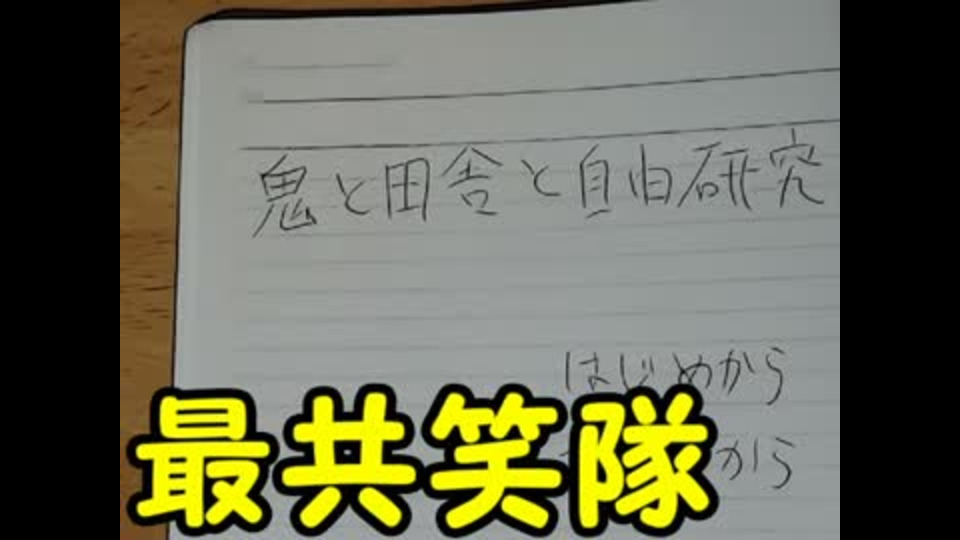 鬼と田舎と自由研究
はじめから
から
最共笑隊